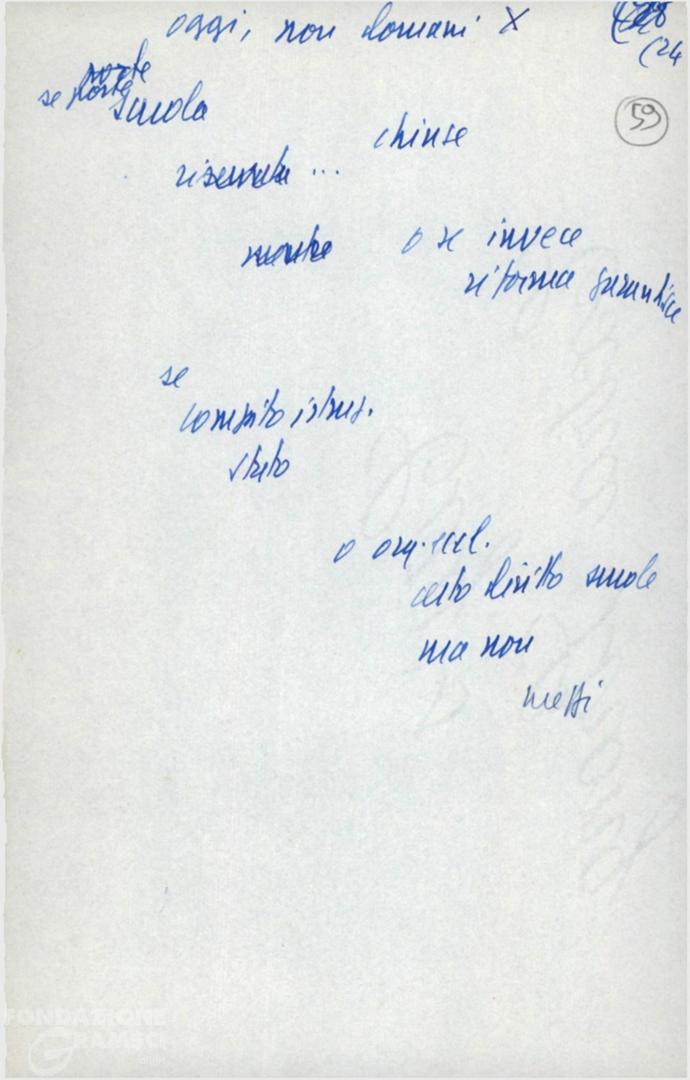 oggi, non domani X
(24
59
porte
se porte
scuola
chiuse
riservate ...
o se invece
riforma garantisce
se
compito istruz.
stato
o org. eccl.
certo diritto scuole
ma non
mezzi
FONDAZIONE
GRAMSCI